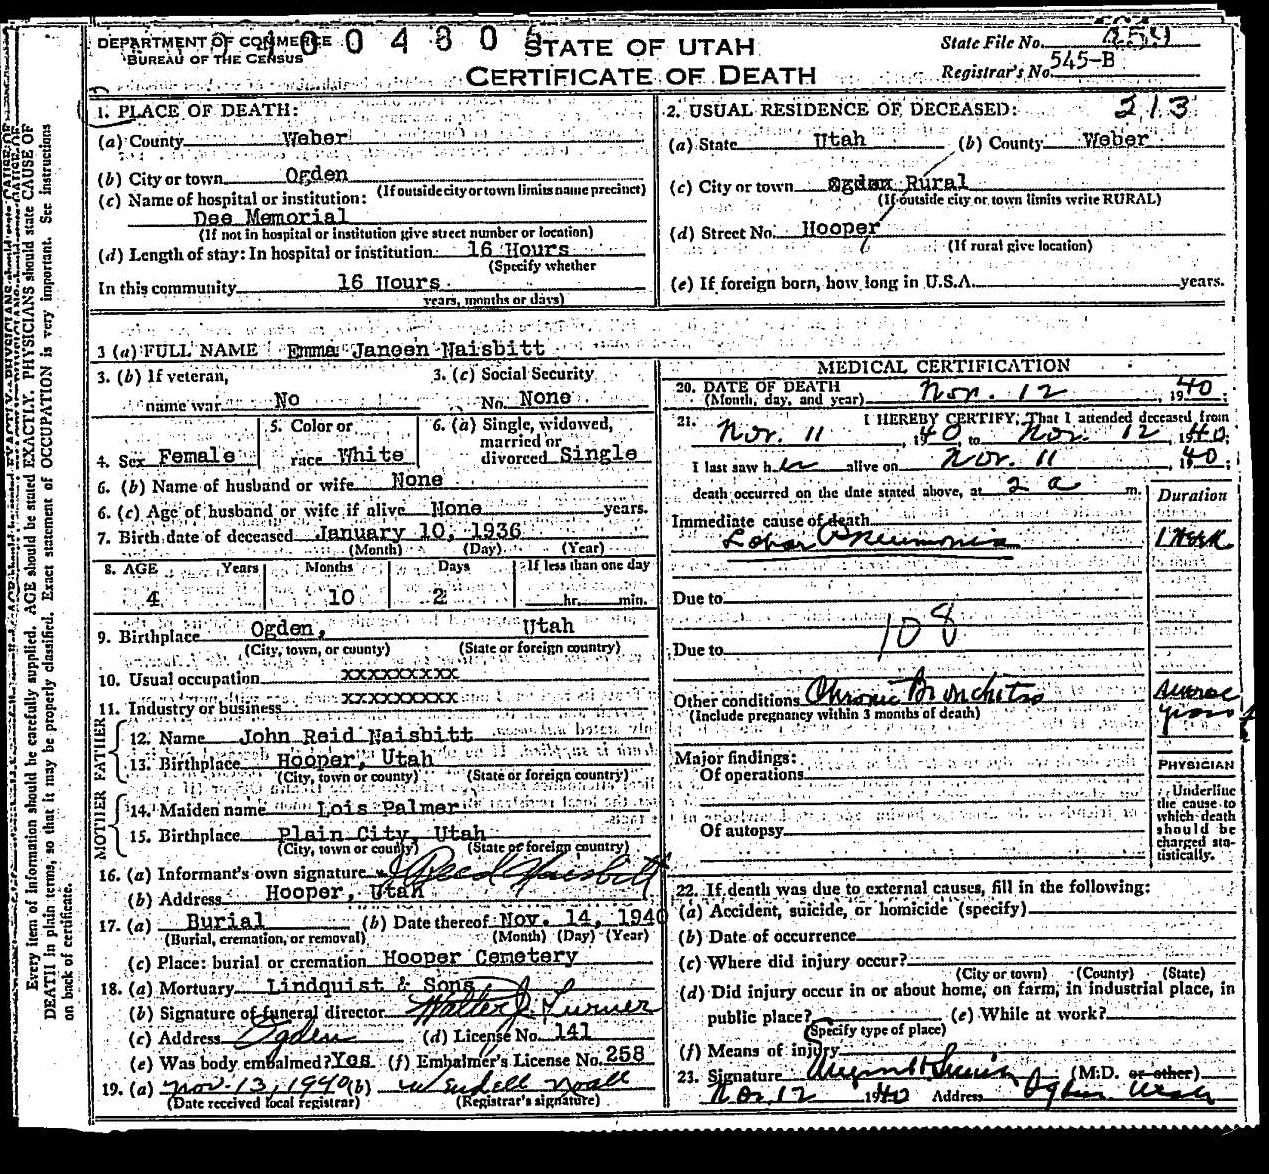 DEPARTMENT OF COMMERCE
BUREAU OF THE CENSUS
STATE OF UTAH
CERTIFICATE OF DEATH
State File No.
Registrar's No. 545-B
1. PLACE OF DEATH:
(a) County Weber
(b) City or town Ogden
(If outside city or town limits name precinct)
(c) Name of hospital or institution:
Dee Memorial
(If not in hospital or institution give street number or location)
(d) Length of stay: In hospital or institution 16 Hours
(Specify whether
In this community 16 Hours
years, months or days)
2. USUAL RESIDENCE OF DECEASED: 213
(a) State Utah (b) County Weber
(c) City or town Ogden Rural
(If outside city or town limits write RURAL)
(d) Street No. Hooper
(If rural give location)
(e) If foreign born, how long in U.S.A. years.
3 (a) FULL NAME Emma Janeen Naisbitt
3. (b) If veteran,
name war No
3. (c) Social Security
No. None
4. Sex Female
5. Color or
race White
6. (a) Single, widowed,
married or
divorced Single
6. (b) Name of husband or wife None
6. (c) Age of husband or wife if alive None years.
7. Birth date of deceased January 10, 1936
(Month) (Day) (Year)
8. AGE Years Months Days If less than one day
4 10 2 hr. min.
9. Birthplace Ogden, Utah
(City, town, or county) (State or foreign country)
10. Usual occupation xxxxxxxxx
11. Industry or business xxxxxxxxx
FATHER
12. Name John Reid Naisbitt
13. Birthplace Hooper, Utah
(City, town or county) (State or foreign country)
MOTHER
14. Maiden name Lois Palmer
15. Birthplace Plain City, Utah
(City, town or county) (State or foreign country)
16. (a) Informant's own signature J Reed Naisbitt
(b) Address Hooper, Utah
17. (a) Burial (b) Date thereof Nov. 14, 1940
(Burial, cremation, or removal) (Month) (Day) (Year)
(c) Place: burial or cremation Hooper Cemetery
18. (a) Mortuary Lindquist & Sons
(b) Signature of funeral director Walter J. Turner
(c) Address Ogden (d) License No. 141
(e) Was body embalmed? Yes (f) Embalmer's License No. 258
19. (a) Nov. 13, 1940 (b) Wendell Noall
(Date received local registrar) (Registrar's signature)
MEDICAL CERTIFICATION
20. DATE OF DEATH
(Month, day, and year) Nov. 12, 1940;
21. I HEREBY CERTIFY, That I attended deceased from
Nov. 11, 1940 to Nov. 12, 1940;
I last saw her alive on Nov. 11, 1940;
death occurred on the date stated above, at 2 a m.
Duration
Immediate cause of death
Lobar Pneumonia 1 week
Due to
108
Due to
Other conditions Chronic Bronchitis
(Include pregnancy within 3 months of death)
Major findings:
Of operations
Of autopsy
PHYSICIAN
Underline
the cause to
which death
should be
charged sta-
tistically.
22. If death was due to external causes, fill in the following:
(a) Accident, suicide, or homicide (specify)
(b) Date of occurrence
(c) Where did injury occur?
(City or town) (County) (State)
(d) Did injury occur in or about home, on farm, in industrial place, in
public place? (e) While at work?
(Specify type of place)
(f) Means of injury
23. Signature (M.D. or other)
Nov 12 1940 Address Ogden Utah
Every item of information should be carefully supplied. AGE should be stated EXACTLY. PHYSICIANS should state CAUSE OF
DEATH in plain terms, so that it may be properly classified. Exact statement of OCCUPATION is very important. See instructions
on back of certificate.